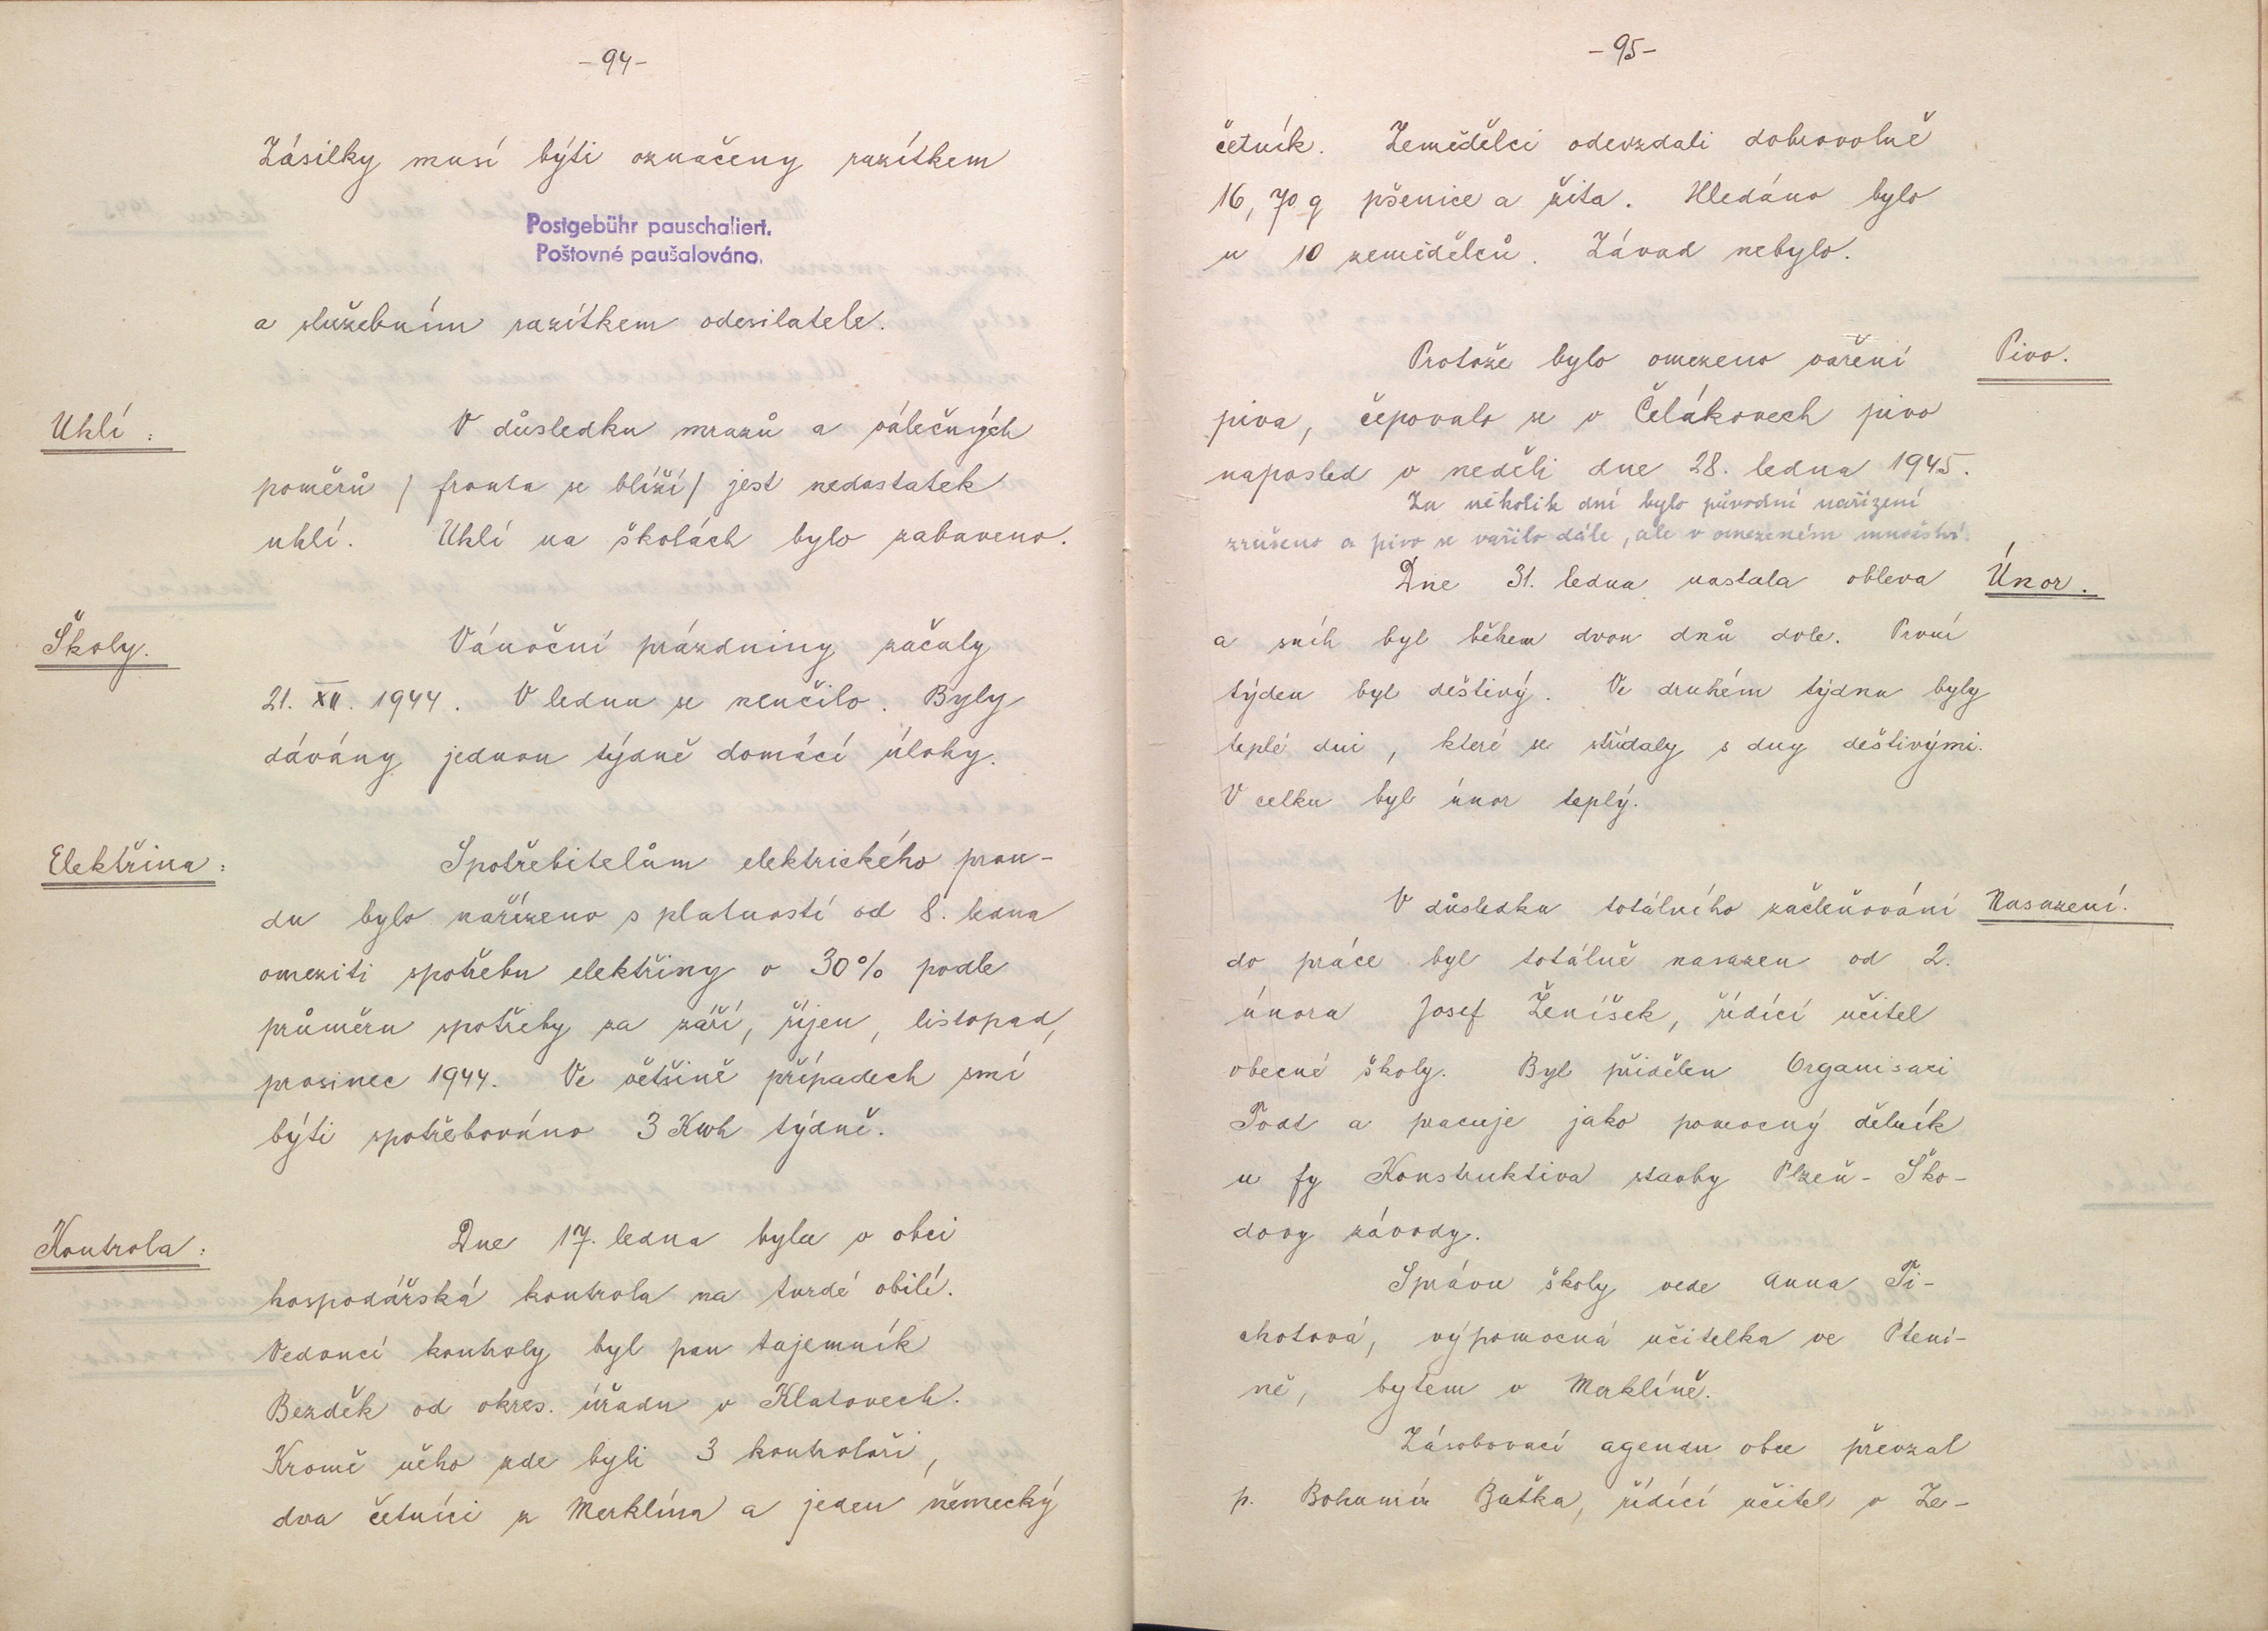 -94-
Zásilky musí býti označeny razítkem
Postgebühr pauschaliert.
Poštovné paušalováno.
a služebním razítkem odesilatele.
Uhlí:
V důsledku mrazů a válečných
poměrů / fronta se blíží / jest nedostatek
uhlí. Uhlí na školách bylo zabaveno.
Školy.
Vánoční prázdniny začaly
21. XII. 1944. V lednu se neučilo. Byly
dávány jednou týdně domácí úlohy.
Elektřina:
Spotřebitelům elektrického prou-
du bylo nařízeno s platností od 8. ledna
omeziti spotřebu elektřiny o 30% podle
průměru spotřeby za září, říjen, listopad,
prosinec 1944. Ve většině případech smí
býti spotřebováno 3 Kwh týdně.
Kontrola:
Dne 17. ledna byla v obci
hospodářská kontrola na tvrdé obilí.
Vedoucí kontroly byl pan tajemník
Bezděk od okres. úřadu v Klatovech.
Kromě něho zde byli 3 kontroloři,
dva četníci z Merklína a jeden německý
-95-
četník. Zemědělci odevzdali dobrovolně
16,70 q pšenice a žita. Hledáno bylo
u 10 zemědělců. Závad nebylo.
Protože bylo omezeno vaření
Pivo.
piva, čepovalo se v Čelákovech pivo
naposled v neděli dne 28. ledna 1945.
Za několik dní bylo původní nařízení
zrušeno a pivo se vařilo dále, ale v omezeném množství.
Dne 31. ledna nastala obleva
Únor.
a sníh byl během dvou dnů dole. První
týden byl deštivý. Ve druhém týdnu byly
teplé dni, které se střídaly s dny deštivými.
V celku byl únor teplý.
V důsledku totálního začleňování
Nasazení.
do práce byl totálně nasazen od 2.
února Josef Ženíšek, řídící učitel
obecné školy. Byl přidělen Organisaci
Todt a pracuje jako pomocný dělník
u fy Konstruktiva stavby Plzeň - Ško-
dovy závody.
Správu školy vede Anna Ti-
chotová, výpomocná učitelka ve Ptení-
ně, bytem v Merklíně.
Zásobovací agendu obce převzal
p. Bohumír Baťka, řídící učitel v Ze-